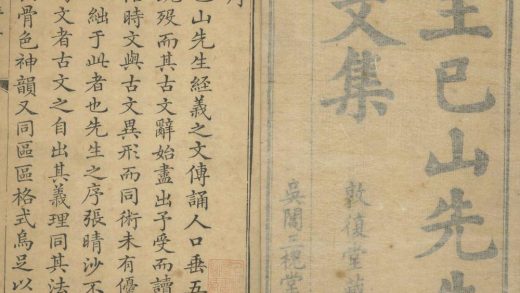 王已山先生
文集
敦復堂
吳閶
序
已山先生經義之文傳誦人口垂五
歿而其古文辭始盡出予受而讀
時文與古文異形而同術未有優
絀于此者也先生之序張晴沙不
文者古文之自出其義理同其法
骨色神韻又同區區格式烏足以